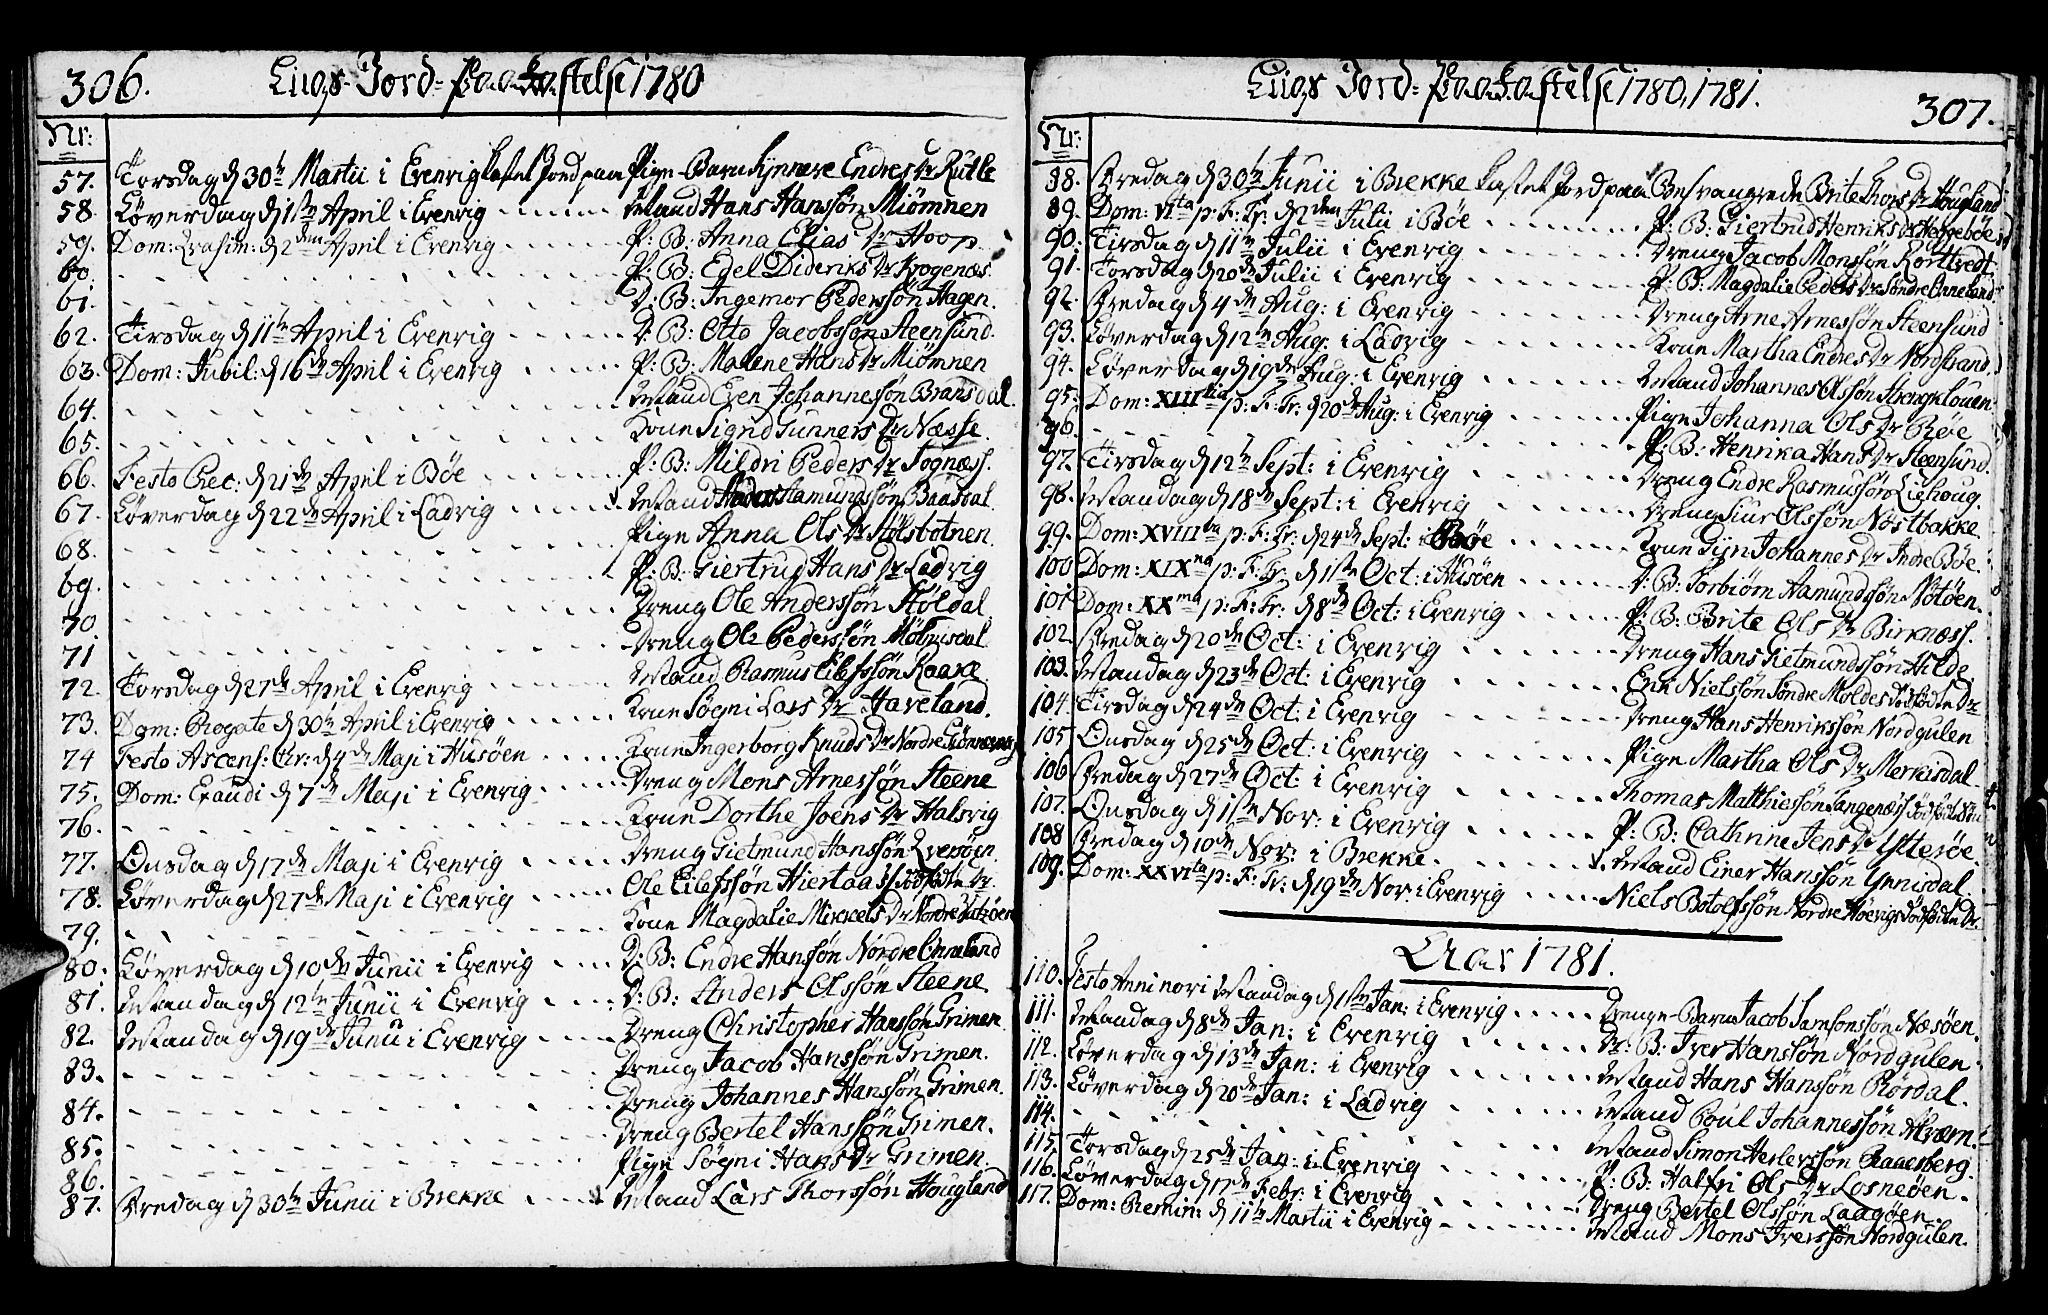 306. Liigs Jord-Paakastelse 1780
Nr:
57. Torsdag d 30te Martii i Evenvig kastet Jord paa Pige-Barn Synneve Endres Dr Rutle
58. Løverdag d 1ste April i Evenvig Mand Hans Hanssøn Miømnen
59. Dom: Qvasim: d 2den April i Evenvig P: B: Anna Elias Dr Hoop
60. P: B: Edel Dideriks Dr Krogenæs.
61. D: B: Ingemor Pederssøn Hagen.
62. Tirsdag d 11te April i Evenvig D: B: Otto Jacobssøn Steensund.
63. Dom: Jubil: d 16de April i Evenvig P: B: Malene Hans Dr Miömnen
64. Mand Even Johannessøn Bransdal.
65. Kone Sigrid Gunners Dr Næsse.
66. Festo Prec: d 21de April i Bøe P: B: Mildri Peders Dr Sognæss.
67. Løverdag d 22de April i Ladvig Mand Anders Aamundssøn Baasdal.
68. Pige Anna Ols Dr Stølsbotnen.
69. P: B: Giertrud Hans Dr Ladvig
70 Dreng Ole Anderssøn Støldal
71 Dreng Ole Pederssøn Mölmisdal
72. Torsdag d 27de April i Evenvig Mand Rasmus Eilefssøn Raake
73. Dom: Rogate d 30te April i Evenvig Kone Søgni Lars Dr Haveland.
74 Festo Ascens: Chr: d 4de Maji i Husøen Kone Ingerborg Knuds Dr Nordre
75. Dom: Exaudi d 7de Maji i Evenvig Dreng Mons Arnessøn Steene
76. Kone Dorthe Joens Dr Halsvig
77. Onsdag d 17de Maji i Evenvig Dreng Gietmund Hanssøn Qversøen.
78. Løverdag d 27de Maji i Evenvig Ole Eilefssøn Hiertaas dødfødte Dr.
79. Kone Magdalie Mickels Dr Nordre
80. Løverdag d 10de Junii i Evenvig D: B: Endre Hanssøn Nordre Onneland
81. Mandag d 12te Junii i Evenvig D: B: Anders Olssøn Steene.
82. Mandag d 19de Junii i Evenvig Dreng Christopher Hanssøn Grimen
83. Dreng Jacob Hanssøn Grimen.
84. Dreng Johannes Hanssøn Grimen.
85. Dreng Bertel Hanssøn Grimen.
86. Pige Søgni Hans Dr Grimen.
87. Fredag d 30te Junii i Brekke Mand Lars Thorssøn Hougland
Liigs Jord-Paakastelse 1780, 1781. 307.
Nr:
88. Fredag d 30te Junii i Brekke kastet Jord paa Besvangrede Brite Thors Dr Hougland
89. Dom: VIta p: F: Tr: d 2den Julii i Bøe P: B: Giertrud Henriks Dr Heggebøe
90. Tirsdag d 11te Julii i Evenvig Dreng Jacob Monssøn Rortvedt
91. Torsdag d 20de Julii i Evenvig P: B: Magdalie Peders Dr Søndre Onneland
92. Fredag d 4de Aug: i Evenvig Dreng Arne Arnessøn Steensund
93. Løverdag d 12te Aug: i Ladvig Kone Martha Endres Dr Nordstrand.
94. Løverdag d 19de Aug: i Evenvig Mand Johannes Olssøn
95. Dom: XIIItia p: F: Tr: d 20de Aug: i Evenvig Pige Johanna Ols Dr Bøe
96. P: B: Henrika Hans Dr Steensund.
97. Tirsdag d 12te Sept: i Evenvig Dreng Endre Rasmussøn Liehoug.
98. Mandag d 18de Sept: i Evenvig Dreng Siur Olssøn Nøstbakke.
99. Dom: XVIIIva p: F: Tr: d 24de Sept: i Bøe Kone Gijn Johannes Dr Indre Bøe.
100 Dom: XIXna p: F: Tr: d 1ste Oct: i Husöen D: B: Torbiørn Aamundssøn Notøen.
101 Dom: XXma p: F: Tr: d 8de Oct: i Evenvig P: B: Brite Ols Dr Birknæss.
102. Fredag d 20de Oct: i Evenvig Dreng Hans Gietmundssøn Hilde
103. Mandag d 23de Oct: i Evenvig Enn Nielssøn Søndre Moldes dødfødte Dr
104. Tirsdag d 24de Oct: i Evenvig Dreng Hans Henrikssøn Nordgulen
105 Onsdag d 25de Oct: i Evenvig Pige Martha Ols Dr Merkisdal
106 Fredag d 27de Oct: i Evenvig Thomas Matthiessøn Tangenæss dødfødte
107. Onsdag d 1ste Nov: i Evenvig P: B: Cathrine Jens Dr Ytterøe.
108 Fredag d 10de Nov: i Brekke. Mand Einer Hanssøn Ynnisdal.
109. Dom: XXVIta p: F: Tr: d 19de Nov: i Evenvig Niels Botolfssøn Nordre Høevigs dødfødte Dr.
Aar 1781.
110. Festo Anni novi Mandag d 1ste Jan: i Evenvig Drenge-Barn Jacob Samsonssøn Næsøen.
111. Mandag d 8de Jan: i Evenvig Dr: B: Iver Hanssøn Nordgulen.
112. Løverdag d 13de Jan: i Evenvig Mand Hans Hanssøn Rørdal.
113. Løverdag d 20de Jan: i Ladvig Mand Poul Johannessøn Kværn.
114. Mand Simon Herlerssøn
115. Torsdag d 25de Jan: i Evenvig P: B: Halfri Ols Dr Losneøen.
116. Løverdag d Febr: i Evenvig Dreng Bertel Olssøn Laagøen.
117. Dom: Remin: d 11te Martii i Evenvig Mand Mons Iverssøn Nordgulen.